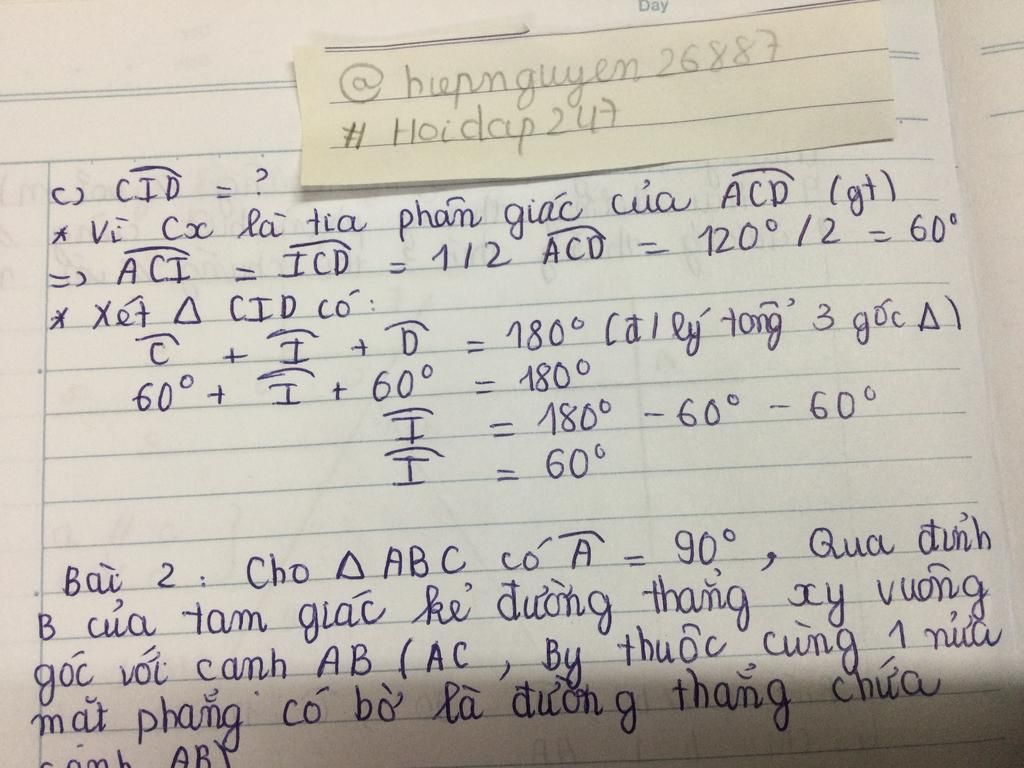 Day
@ hiepnguyen26887
# Hoidap247
c) CID = ?
* Vì Cx là tia phân giác của ACD (gt)
=> ACI = ICD = 1/2 ACD = 120° / 2 = 60°
* Xét Δ CID có:
C + I + D = 180° (đ/lý tổng 3 góc Δ)
60° + I + 60° = 180°
I = 180° - 60° - 60°
I = 60°
Bài 2 : Cho Δ ABC có A = 90°, Qua đỉnh
B của tam giác kẻ đường thẳng xy vuông
góc với cạnh AB (AC, By thuộc cùng 1 nửa
mặt phẳng có bờ là đường thẳng chứa
cạnh AB)